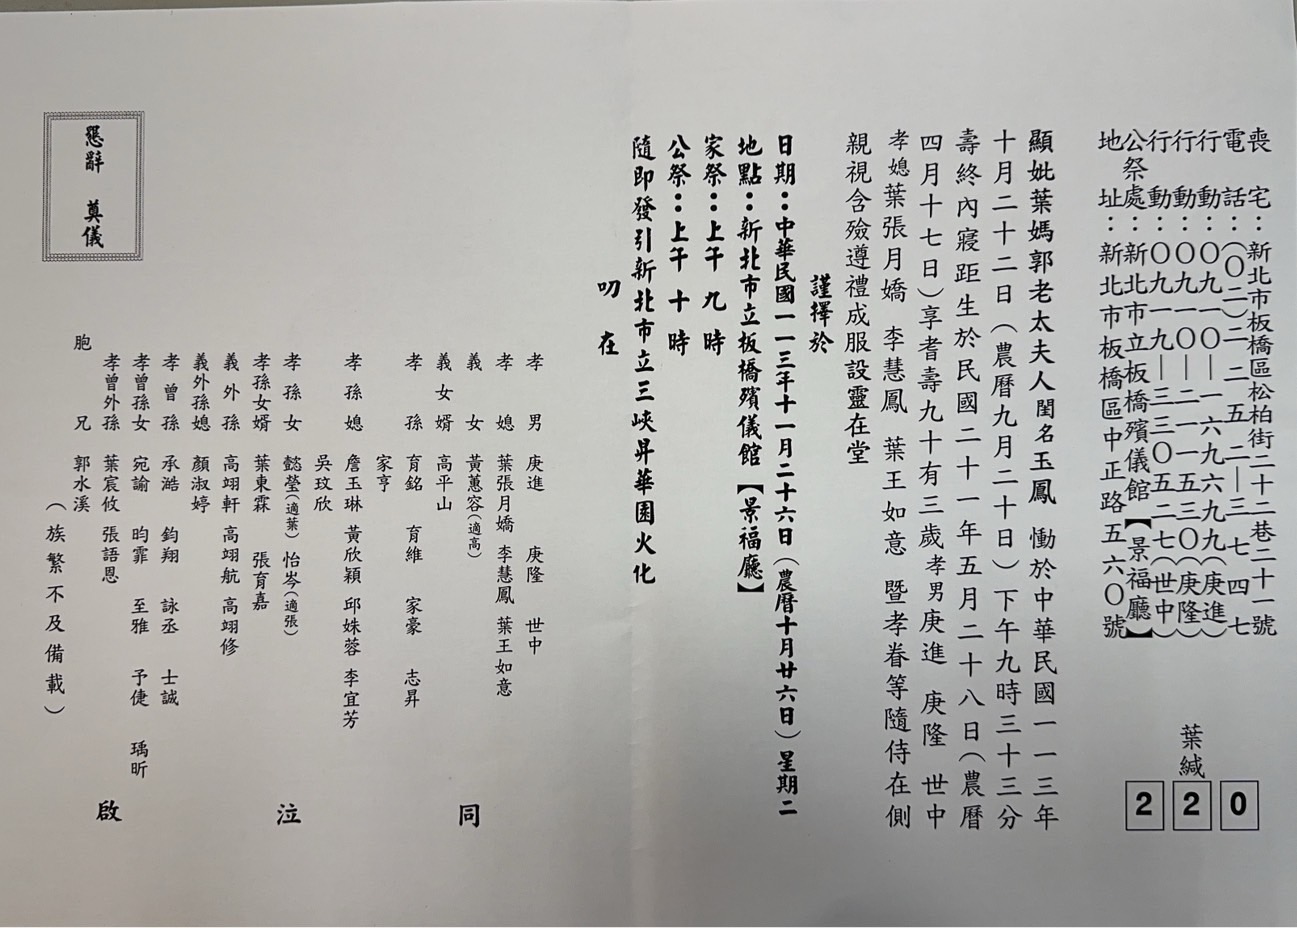 喪宅：新北市板橋區松柏街二十二巷二十一號
電話：(〇二)二二五二—三七四七
行動：〇九一〇—一六九六九九(庚進)
行動：〇九一〇〇—二一一五三〇(庚隆)
行動：〇九一九—三三〇五二七(世中)
公祭處：新北市立板橋殯儀館【景福廳】
地址：新北市板橋區中正路五六〇號
葉緘
220
顯妣葉媽郭老太夫人閨名玉鳳 慟於中華民國一一三年
十月二十二日(農曆九月二十日)下午九時三十三分
壽終內寢距生於民國二十一年五月二十八日(農曆
四月十七日)享耆壽九十有三歲孝男庚進 庚隆 世中
孝媳葉張月嬌 李慧鳳 葉王如意 暨孝眷等隨侍在側
親視含殮遵禮成服設靈在堂
謹擇於
日期：中華民國一一三年十一月二十六日(農曆十月廿六日)星期二
地點：新北市立板橋殯儀館【景福廳】
家祭：上午九時
公祭：上午十時
隨即發引新北市立三峽昇華園火化
叨在
孝男 庚進 庚隆 世中
孝媳 葉張月嬌 李慧鳳 葉王如意
義女 黃蕙容(適高)
義女婿 高平山
孝孫 育銘 育維 家豪 志昇
家亨
孝孫媳 詹玉琳 黃欣穎 邱姝蓉 李宜芳
吳玟欣
孝孫女 懿瑩(適葉) 怡岑(適張)
孝孫女婿 葉東霖 張育嘉
義外孫 高翊軒 高翊航 高翊修
義外孫媳 顏淑婷
孝曾孫 承澔 鈞翔 詠丞 士誠
孝曾孫女 宛諭 昀霏 至雅 予倢 瑀昕
孝曾外孫 葉宸攸 張語恩
胞兄 郭水溪
(族繁不及備載)
同泣啟
懇辭 奠儀